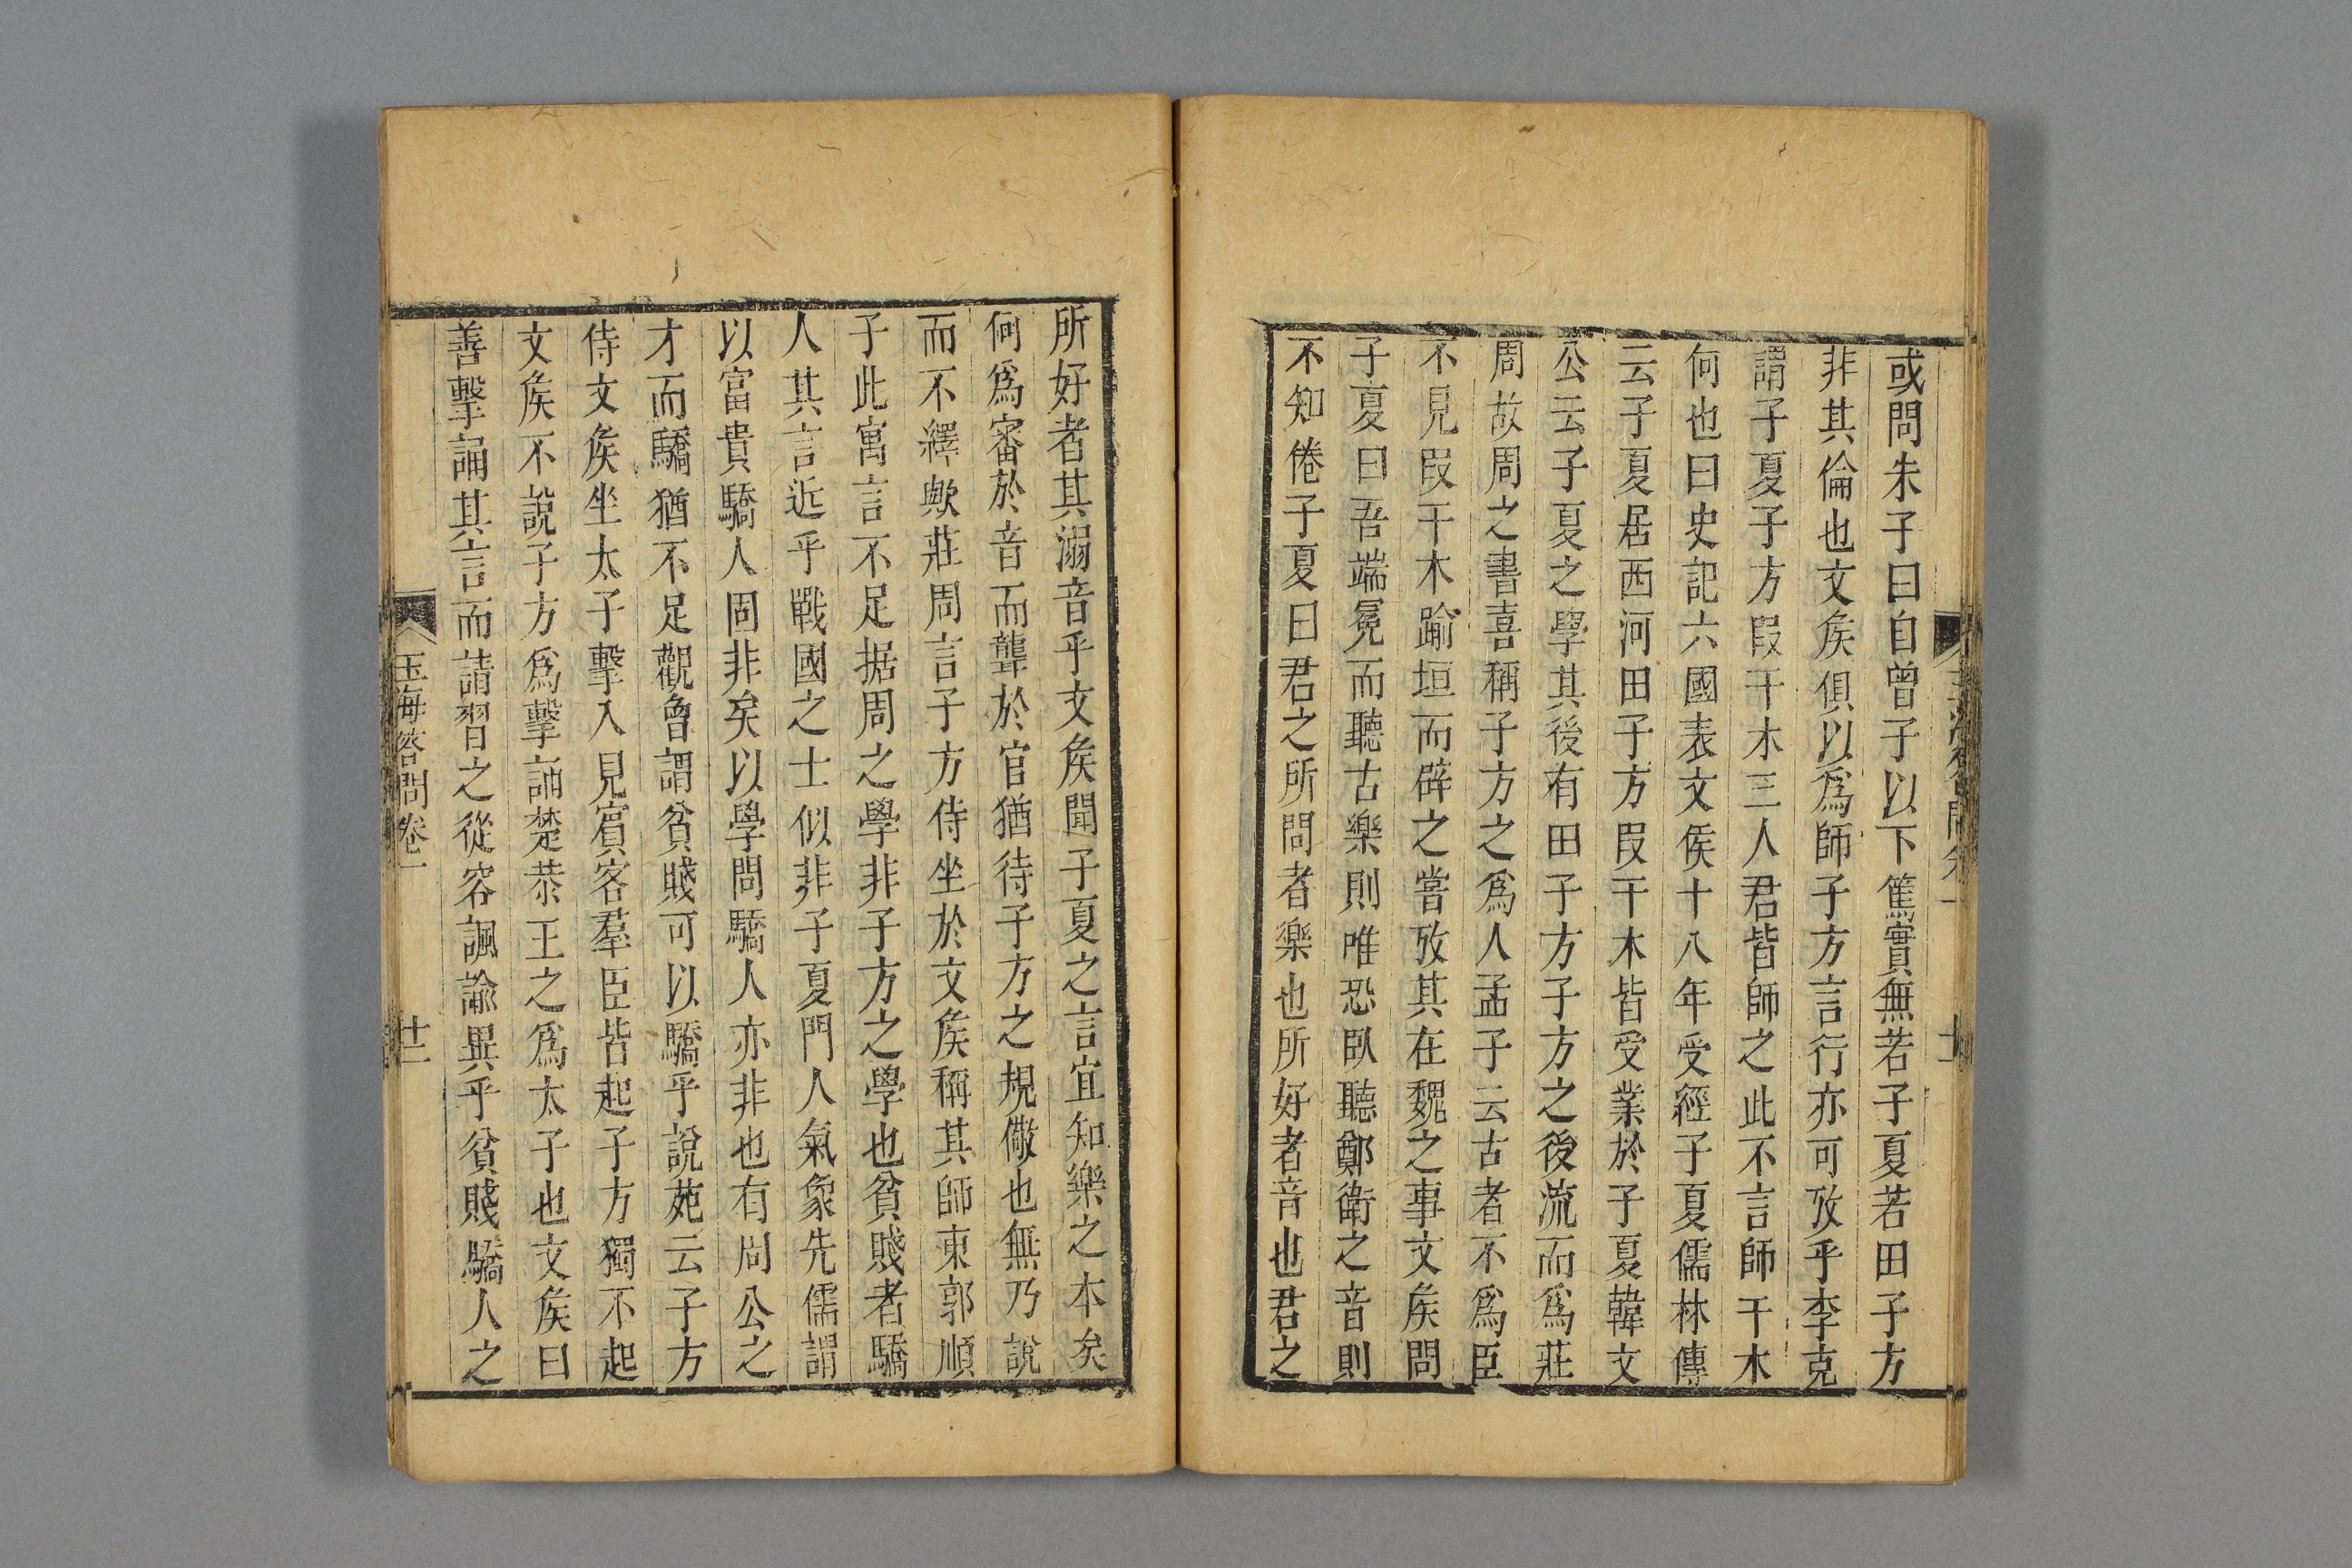 或問朱子曰自曾子以下篤實無若子夏若田子方
非其倫也文矦俱以爲師子方言行亦可攷乎李克
謂子夏子方段干木三人君皆師之此不言師干木
何也曰史記六國表文矦十八年受經子夏儒林傳
云子夏居西河田子方段干木皆受業於子夏韓文
公云子夏之學其後有田子方子方之後流而爲莊
周故周之書喜稱子方之爲人孟子云古者不爲臣
不見段干木踰垣而辟之嘗攷其在魏之事文矦問
子夏曰吾端冕而聽古樂則唯恐臥聽鄭衛之音則
不知倦子夏曰君之所問者樂也所好者音也君之
所好者其溺音乎文矦聞子夏之言宜知樂之本矣
何爲審於音而聾於官猶待子方之規儆也無乃說
而不繹歟莊周言子方侍坐於文矦稱其師東郭順
子此寓言不足据周之學非子方之學也貧賤者驕
人其言近乎戰國之士似非子夏門人氣象先儒謂
以富貴驕人固非矣以學問驕人亦非也有周公之
才而驕猶不足觀曾謂貧賤可以驕乎說苑云子方
侍文矦坐太子擊入見賔客羣臣皆起子方獨不起
文矦不說子方爲擊誦楚恭王之爲太子也文矦曰
善擊誦其言而請習之從容諷諭異乎貧賤驕人之
玉海答問卷一
廿二